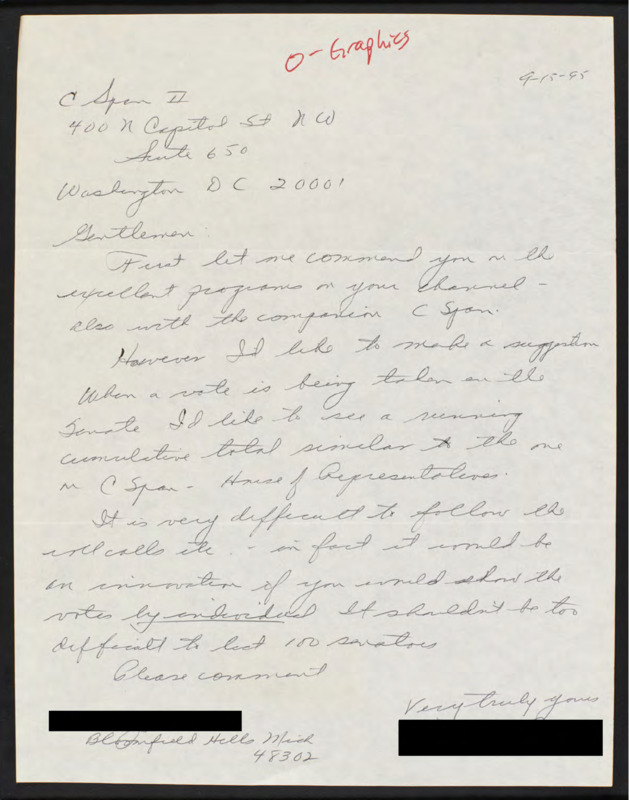 O-Graphics
9-15-95
C Span II
400 N Capitol St NW
Suite 650
Washington D C 20001
Gentlemen:
First let me commend you on the
excellent programs on your channel -
also with the companion C Span.
However I'd like to make a suggestion
When a vote is being taken on the
Senate I'd like to see a running
cumulative total similar to the one
on C Span - House of Representatives.
It is very difficult to follow the
roll calls etc. - in fact it would be
an innovation if you would show the
votes by individual It shouldn't be too
difficult to list 100 senators
Please comment
Very truly yours
Bloomfield Hills Mich
48302